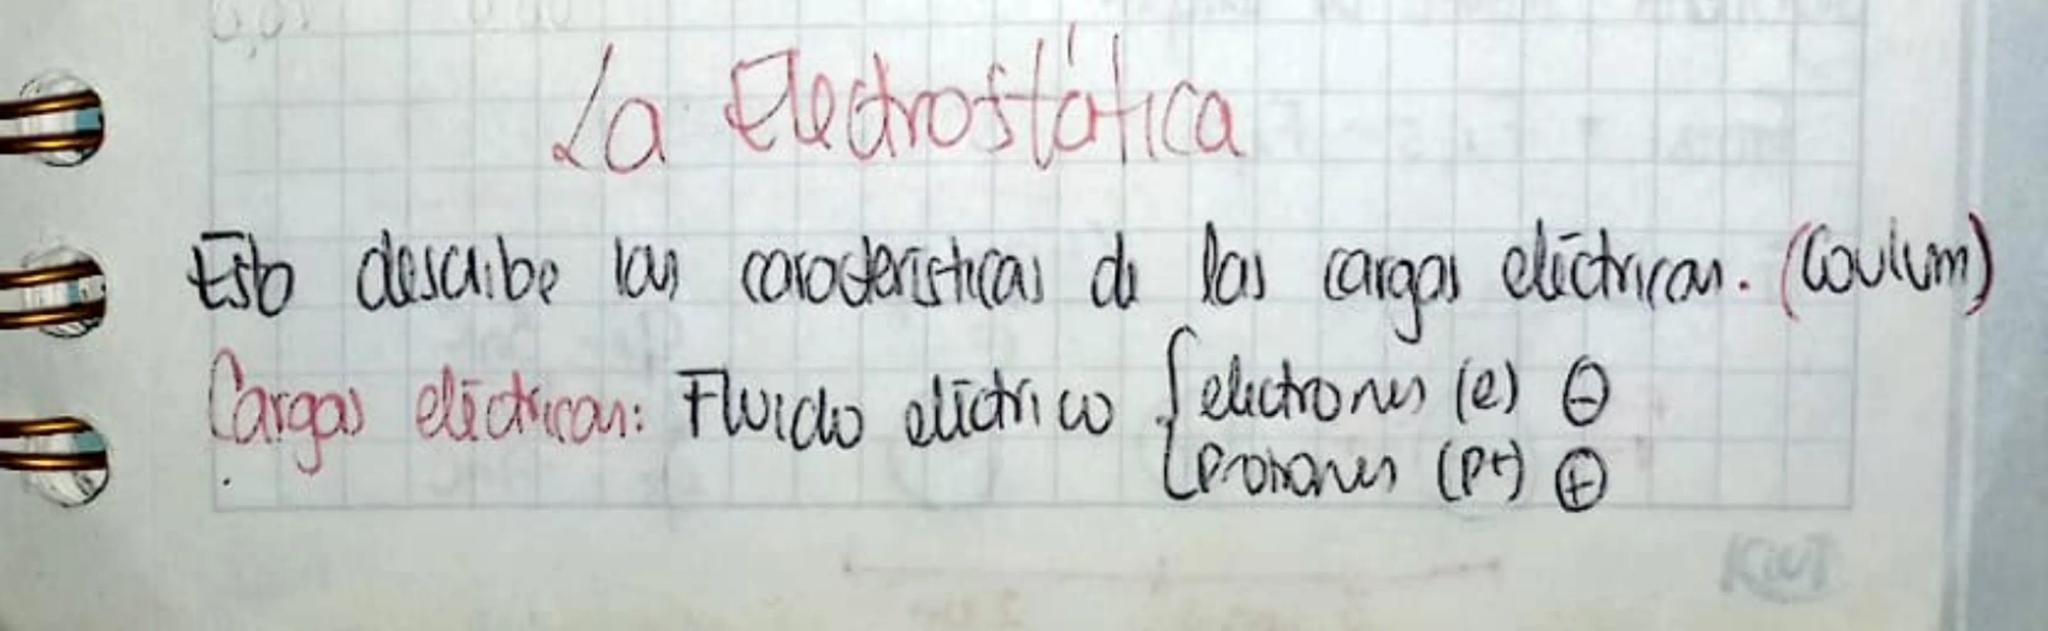 La Electrostática
Esto describe las características de las cargas eléctricas. (Coulum)
Cargas eléctricas: Fluido eléctrico { electrones (e) ⊖
protones (p+) ⊕